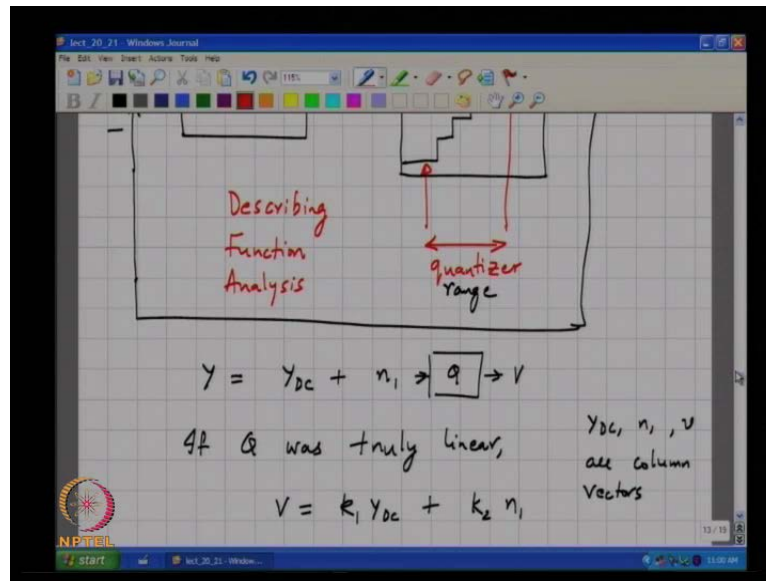 lect_20_21 - Windows Journal
File Edit View Insert Actions Tools Help
115%
B I
Describing
Function
Analysis
quantizer
range
Y = Y_DC + n_1 → Q → V
If Q was truly linear,
V = k_1 Y_DC + k_2 n_1
Y_DC, n_1, v
all column
vectors
13/15
NPTEL
start
lect_20_21 - Window...
11:00 AM